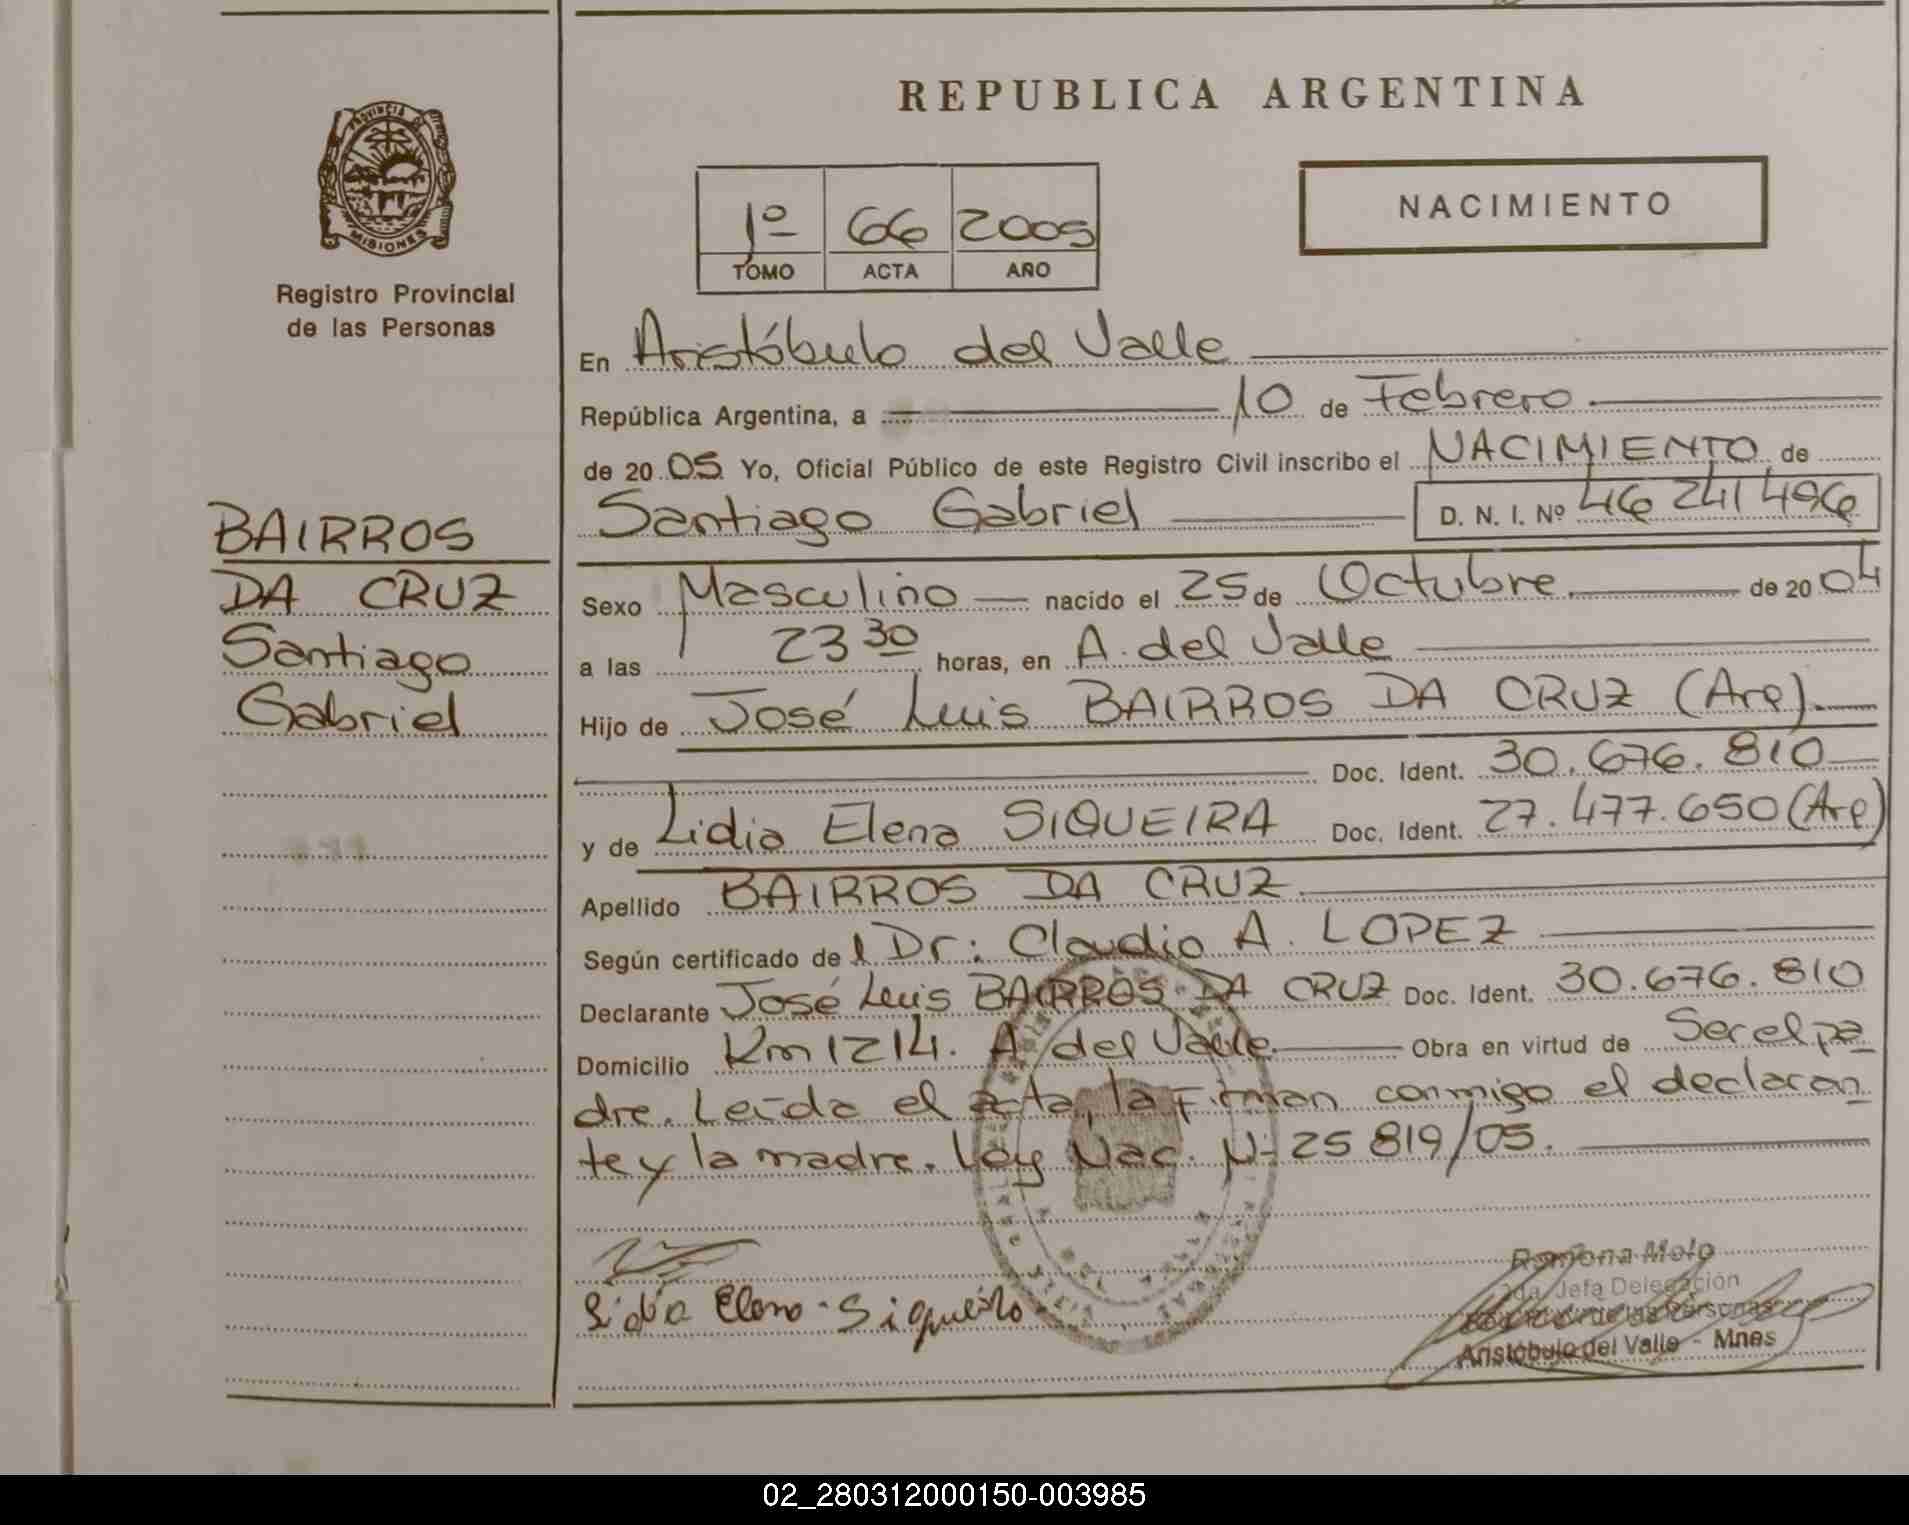 REPUBLICA ARGENTINA
PROVINCIA DE
MISIONES
Registro Provincial
de las Personas
1º 66 2005
TOMO ACTA AÑO
NACIMIENTO
BAIRROS
DA CRUZ
Santiago
Gabriel
En Aristóbulo del Valle
República Argentina, a 10 de Febrero
de 20 05 Yo, Oficial Público de este Registro Civil inscribo el NACIMIENTO de
Santiago Gabriel D. N. I. Nº 46 241 496
Sexo Masculino nacido el 25 de Octubre de 20 04
a las 23 30 horas, en A. del Valle
Hijo de José Luis BAIRROS DA CRUZ (Arg).
Doc. Ident. 30.676.810
y de Lidia Elena SIQUEIRA Doc. Ident. 27.477.650 (Arg)
Apellido BAIRROS DA CRUZ
Según certificado del Dr: Claudio A. LOPEZ
Declarante José Luis BAIRROS DA CRUZ Doc. Ident. 30.676.810
Domicilio Km 1214. A del Valle Obra en virtud de Ser el pa
dre. Leída el acta, la Firman conmigo el declaran
te y la madre. Ley Nac. Nº 25 819/05.
Lidia Elena Siqueira
Ramona Melo
2da Jefa Delegación
de las Personas
Aristóbulo del Valle - Mnes
02_280312000150-003985